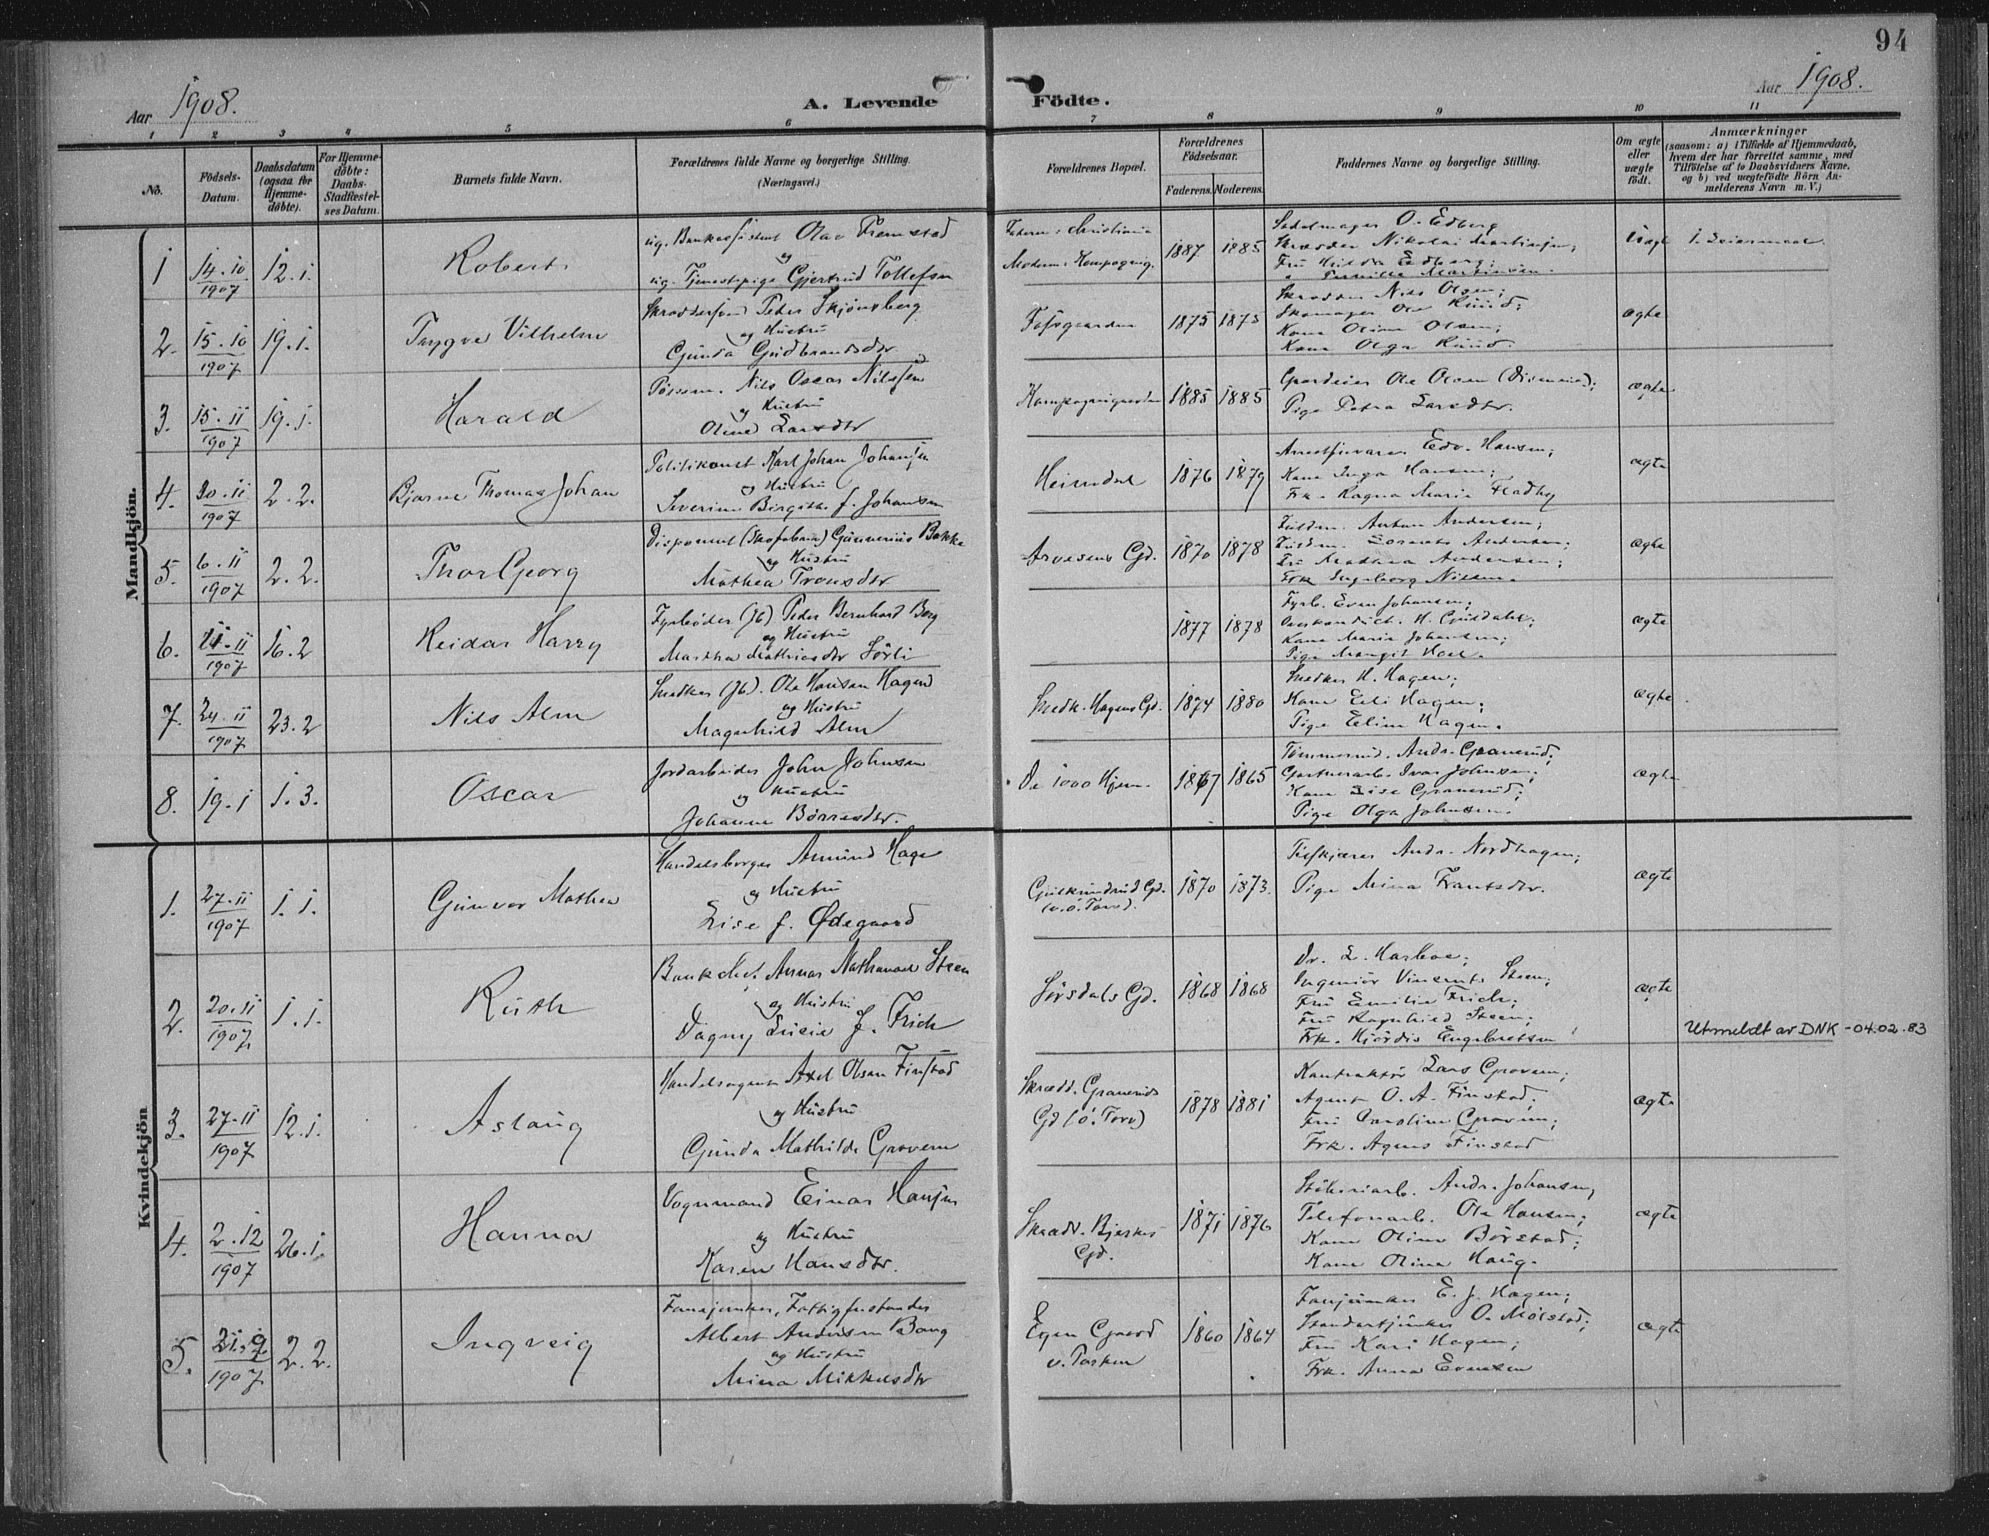 94
Aar 1908.
A. Levende Födte.
Aar 1908.
1 2 3 4 5 6 7 8 9 10 11
No.
Födsels-Datum.
Daabsdatum (ogsaa for Hjemme-døbte).
For Hjemme-døbte: Daabs-Stadfæstel-ses Datum.
Barnets fulde Navn.
Forældrenes fulde Navne og borgerlige Stilling.
(Næringsvei.)
Forældrenes Bopæl.
Forældrenes Födselsaar.
Faderens. Moderens.
Faddernes Navne og borgerlige Stilling.
Om ægte eller uægte födt.
Anmærkninger
(saasom: a) i Tilfælde af Hjemmedaab, hvem der har forrettet samme, med Tilföielse af to Daabsvidners Navne, og b) ved uægtefödte Börn Anmelderens Navn m. V.)
Mandkjön.
1 14.10 1907 12.1.
Robert
ug. Olav Fremstad
og
ug. Tjenestepige Gjertrud Tollefsen
Faderen: Christiania
Moderen:
1887 1885
Sadelmager O. Edberg
Skrædder Nikolai Martinsen;
Fru Hilda Edberg;
Martinsen.
Uægte
2. 15.10 1907 19.1.
Trygve Vilhelm
Skræddersvend Peder Skjønsberg
og Hustru
Gunda Gudbrandsdtr
1875 1875
Skrædder Nils Olsen;
Skomager Ole Ruud;
Kone Oline Olsen;
Kone Olga Ruud.
ægte
3. 15.11 1907 19.1.
Harald
Nils Oscar Nilssen
og Hustru
Oline Larsdtr
1885 1885
Gardeier Ole Olsen
Pige Petra Larsdtr.
ægte
4. 30.11 1907 2.2.
Bjarne Thomas Johan
Politikonst Karl Johan Johansen
og Hustru
Severine Birgitte f. Johansen
Heimdal
1876 1879
Arrestforvarer Edv. Hansen;
Kone Inga Hansen;
Frk. Ragna Maria Fladby
ægte
5. 6.11 1907 2.2.
Thor Georg
Disponent (Skofabrik) Gunnerius Bakke
og Hustru
Mathea Tronsdtr
Arvesens Gd.
1870 1878
Anton Andersen;
Andersen;
Fru Mathea Andersen;
Frk Ingeborg Nilsen.
ægte
6. 11.11 1907 16.2
Reidar Harry
Fyrbøder (Jb) Peder Bernhard Berg
og Hustru
Martha Mathiasdtr Sørli
1877 1878
Fyrb. Even Johansen;
Kone Maria Johansen;
Pige Margit
ægte
7. 24.11 1907 23.2
Nils Alm
Snedker (Jb). Ole Hansen Hagen
og Hustru
Magnhild Alm
Snedk. Hagens Gd.
1874 1880
Snedker H. Hagen;
Kone Eli Hagen;
Pige Eline Hagen.
ægte
8. 19.1 1.3.
Oscar
Jordarbeider John Johnsen
og Hustru
Johanne Børresdtr.
De 1000 Hjem.
1867 1865
Tømmermd. Andr. Granerud;
Gartnerarb. Ivar Johnsen;
Kone Lise Granerud;
Pige Olga Johnsen.
ægte
Kvindekjön
1. 27.11 1907 1.1.
Gunvor Mathea
Handelsborger Amund Hage
og Hustru
Lise f. Ødegaard
1870 1873.
Andr. Nordhagen;
Pige Mina Frantsdtr.
ægte
2. 20.11 1907 1.1.
Ruth
Nathanael Steen
og Hustru
Dagny Lucie f. Frich
Sørsdals Gd.
1868 1868
Dr. L. Harboe;
Ingeniör Vincent Steen;
Fru Emilie Frich;
Fru Ragnhild Steen;
Frk. Hjördis Engebretsen
ægte
Utmeldt av DNK - 04.02.83
3. 27.11 1907 12.1.
Aslaug
Handelsagent Axel Olsen Finstad
og Hustru
Gunda Mathilde Grovum
Skrædd. Graneruds
Gd (ö. Torv)
1878 1881
Kontraktör Lars Grovum;
Agent O. A. Finstad;
Fru Caroline Grovum;
Frk. Agnes Finstad
ægte
4. 2.12 1907 26.1.
Hanna
Vognmand Einar Hansen
og Hustru
Karen Hansdtr.
Skrædr. Bjerkes
Gd.
1871 1876
Andr. Johansen;
Telefonarb. Ole Hansen;
Kone Oline Börstad;
Kone Olina Haug.
ægte
5. 21.9 1907 2.2.
Ingveig
Fanejunker, Fattigforstander
Albert Andersen Bang
og Hustru
Mina Mikkelsdtr
Egen Gaard
v. Parken
1860 1864
Fanejunker E. J. Hagen;
Standartjunker O. Mölstad;
Fru Kari Hagen;
Frk. Anna Evensen
ægte